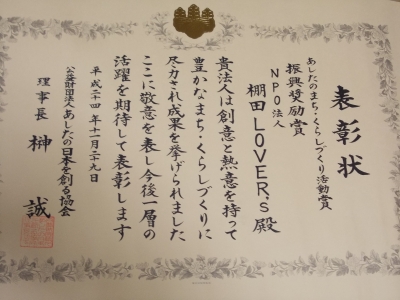 表彰状
あしたのまち・くらしづくり活動賞
振興奨励賞
NPO法人
棚田LOVER,s殿
貴法人は創意と熱意を持って
豊かなまち・くらしづくりに
尽力され成果を挙げられました
ここに敬意を表し今後一層の
活躍を期待して表彰します
平成二十四年十一月二十九日
公益財団法人あしたの日本を創る協会
理事長 榊 誠